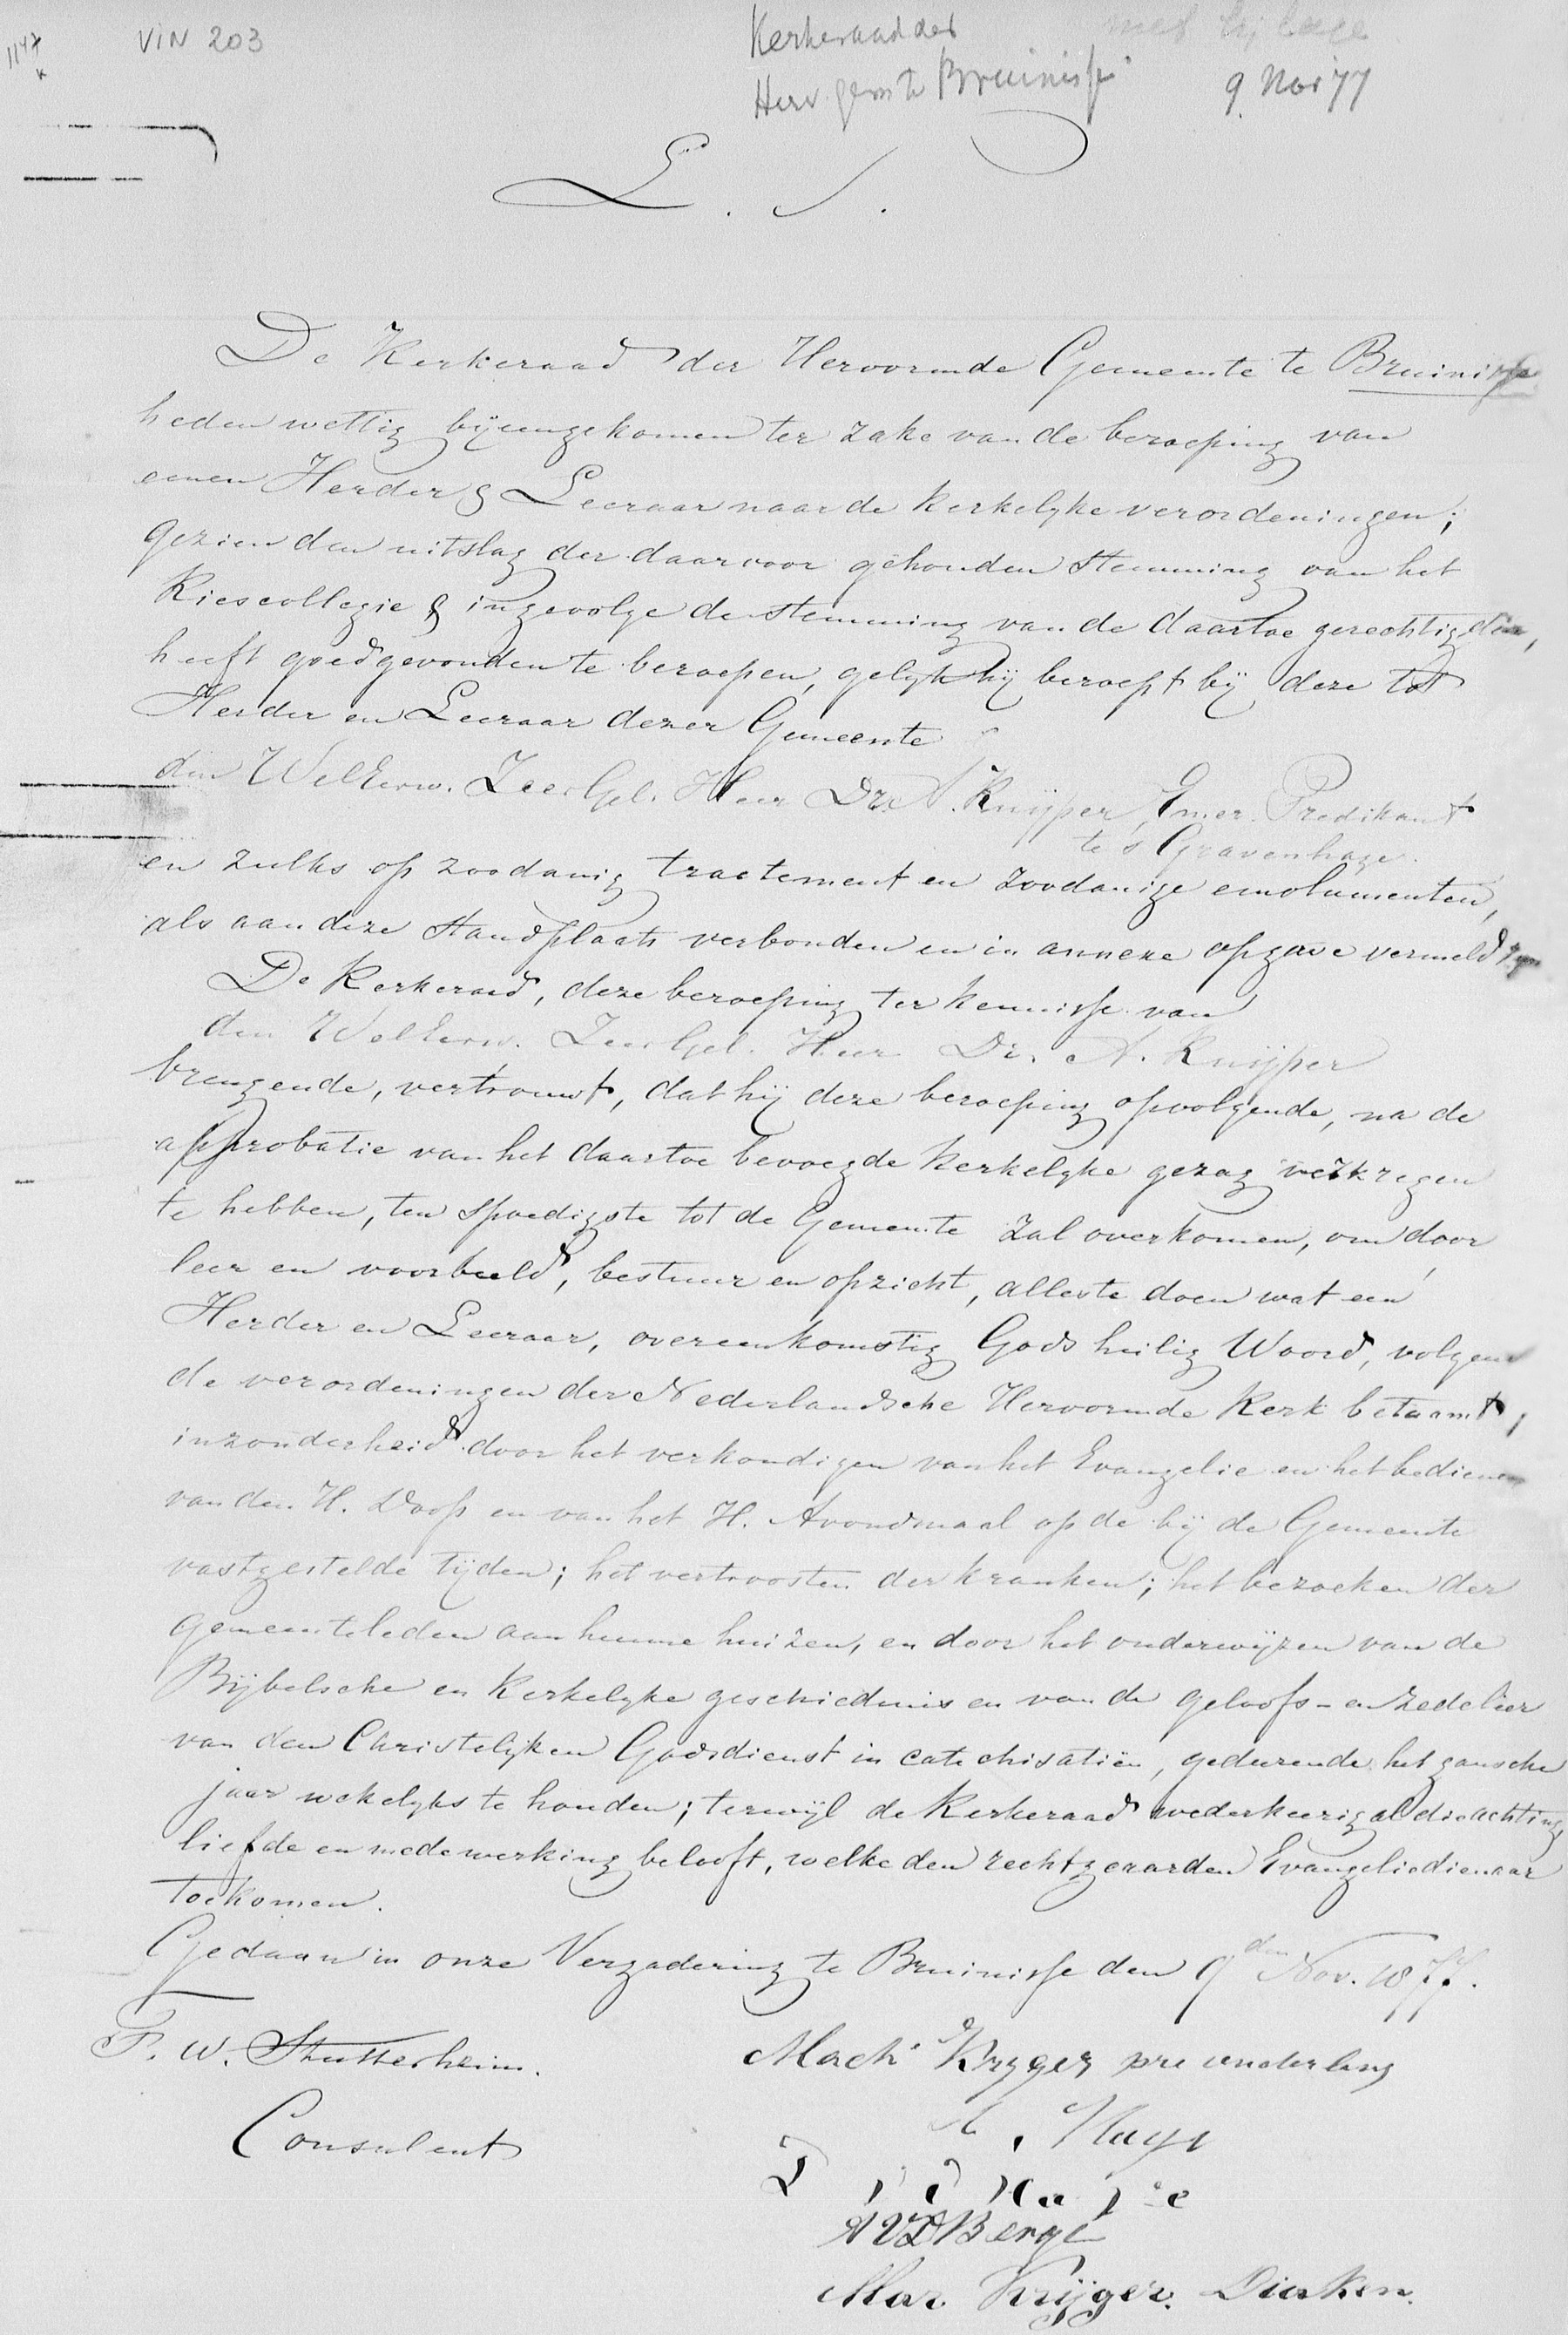 1147
VIN 203
Kerkeraad der
met bijlage
Herv. gem te Bruinisse
9. Nov 77
L. S.
De Kerkeraad der Hervormde Gemeente te Bruinisse
heden wettig bijeengekomen ter zake van de beroeping van
eenen Herder & Leeraar naar de kerkelyke verordeningen;
gezien den uitslag der daarvoor gehouden stemming van het
Kiescollegie & ingevolge de stemming van de daartoe gerechtigden,
heeft goedgevonden te beroepen, gelyk hij beroept bij deze tot
Herder en Leeraar dezer Gemeente
den WelEerw. ZeerGel. Heer Dr. A. Kuijper, Emer. Predikant
te s Gravenhage.
en zulks op zoodanig tractement en zoodanige emolumenten,
als aan deze Standplaats verbonden en in annexe opgave vermeld zyn
De Kerkeraad, deze beroeping ter kennisse van
den WelEerw. ZeerGel. Heer Dr. A. Kuijper
brengende, vertrouwt, dat hij deze beroeping opvolgende, na de
approbatie van het daartoe bevoegde kerkelyke gezag verkregen
te hebben, ten spoedigste tot de Gemeente zal overkomen, om door
leer en voorbeeld, bestuur en opzicht, alles te doen wat een
Herder en Leeraar, overeenkomstig Gods heilig Woord, volgens
de verordeningen der Nederlandsche Hervormde Kerk betaamt,
inzonderheid door het verkondigen van het Evangelie en het bedienen
van den H. Doop en van het H. Avondmaal op de bij de Gemeente
vastgestelde tijden; het vertroosten der kranken; het bezoeken der
gemeenteleden aan hunne huizen, en door het onderwijzen van de
Bijbelsche en Kerkelyke geschiedenis en van de geloofs- en zedeleer
van den Christelijken Godsdienst in catechisatiën, gedurende het gansche
jaar wekelyks te houden; terwijl de Kerkeraad wederkeerig al die achting,
liefde en medewerking belooft, welke den rechtgeaarden Evangeliedienaar
toekomen.
Gedaan in onze Vergadering te Bruinisse den 9den Nov. 1877.
F. W. Stutterheim.
Consulent
Mach Kryger pre ouderling
. Hage
A VD Berge
Mar. Krijger. Diaken.